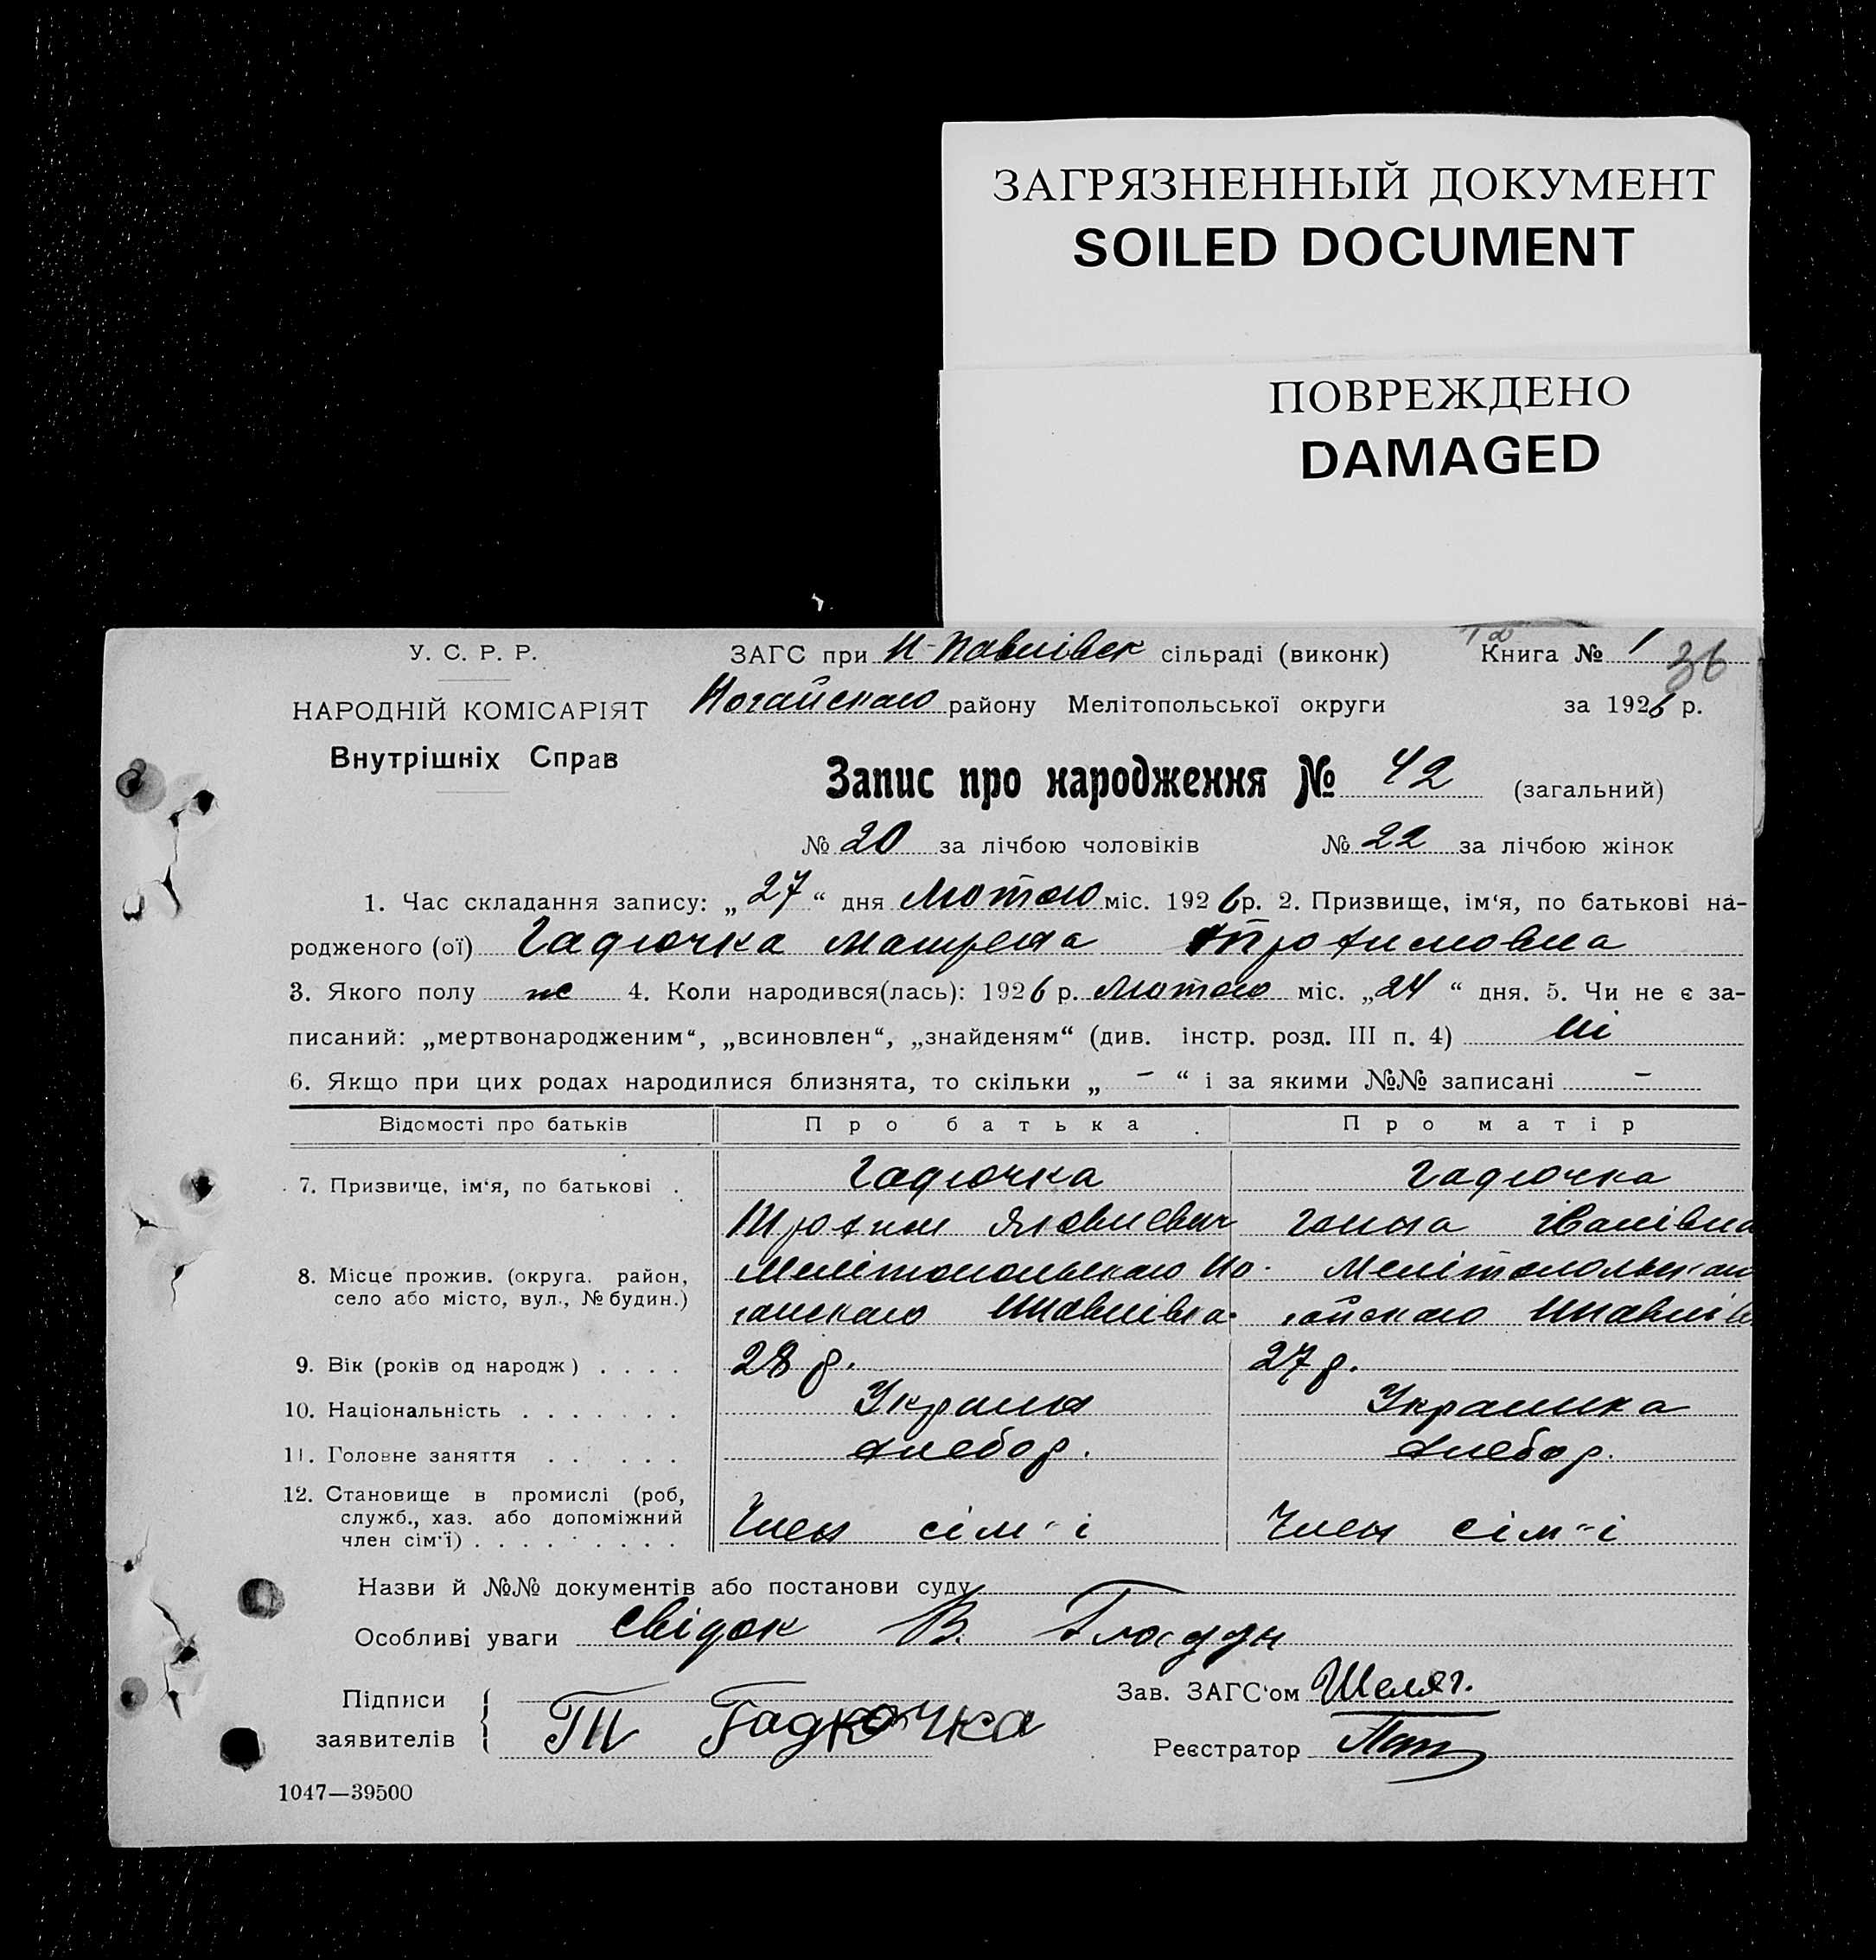 ЗАГРЯЗНЕННЫЙ ДОКУМЕНТ
SOILED DOCUMENT
ПОВРЕЖДЕНО
DAMAGED
У. С. Р. Р.
ЗАГС при Н-Павлівск сільраді (виконк) Книга № 1 36
НАРОДНІЙ КОМІСАРІЯТ
Ногайскаго району Мелітопольської округи за 1926 р.
Внутрішніх Справ
Запис про народження № 42 (загальний)
№ 20 за лічбою чоловіків № 22 за лічбою жінок
1. Час складання запису: „27“ дня Лютого міс. 1926 р. 2. Призвище, ім‘я, по батькові на-
родженого (ої) Гадючка Мотрена Трохимовна
3. Якого полу ж 4. Коли народився(лась): 1926 р. Лютого міс. „24“ дня. 5. Чи не є за-
писаний: „мертвонародженим“, „всиновлен“, „знайденям“ (див. інстр. розд. III п. 4) Ні
6. Якщо при цих родах народилися близнята, то скільки „ – “ і за якими №№ записані –
Відомості про батьків Про батька Про матір
7. Призвище, ім‘я, по батькові Гадючка Гадючка
Трохим Яковлевич Ганна Іванівна
8. Місце прожив. (округа. район, Мелітопольскаго Но- Мелітопольскаго
село або місто, вул., № будин.) гайскаго Нпавлівка гайскаго Нпавлівк
9. Вік (років од народж) . . . . 28 р. 27 р.
10. Національність . . . . . . . Украин Украинка
11. Головне заняття . . . . . Хлебор. Хлебор.
12. Становище в промислі (роб,
служб., хаз. або допоміжний
член сім‘ї) . . . . . . . . . Член сім"і Член сім"і
Назви й №№ документів або постанови суду
Особливі уваги Свідок В.
Підписи Зав. ЗАГС‘ом Шеляг.
заявителів Т Гадючка Реєстратор
1047—39500